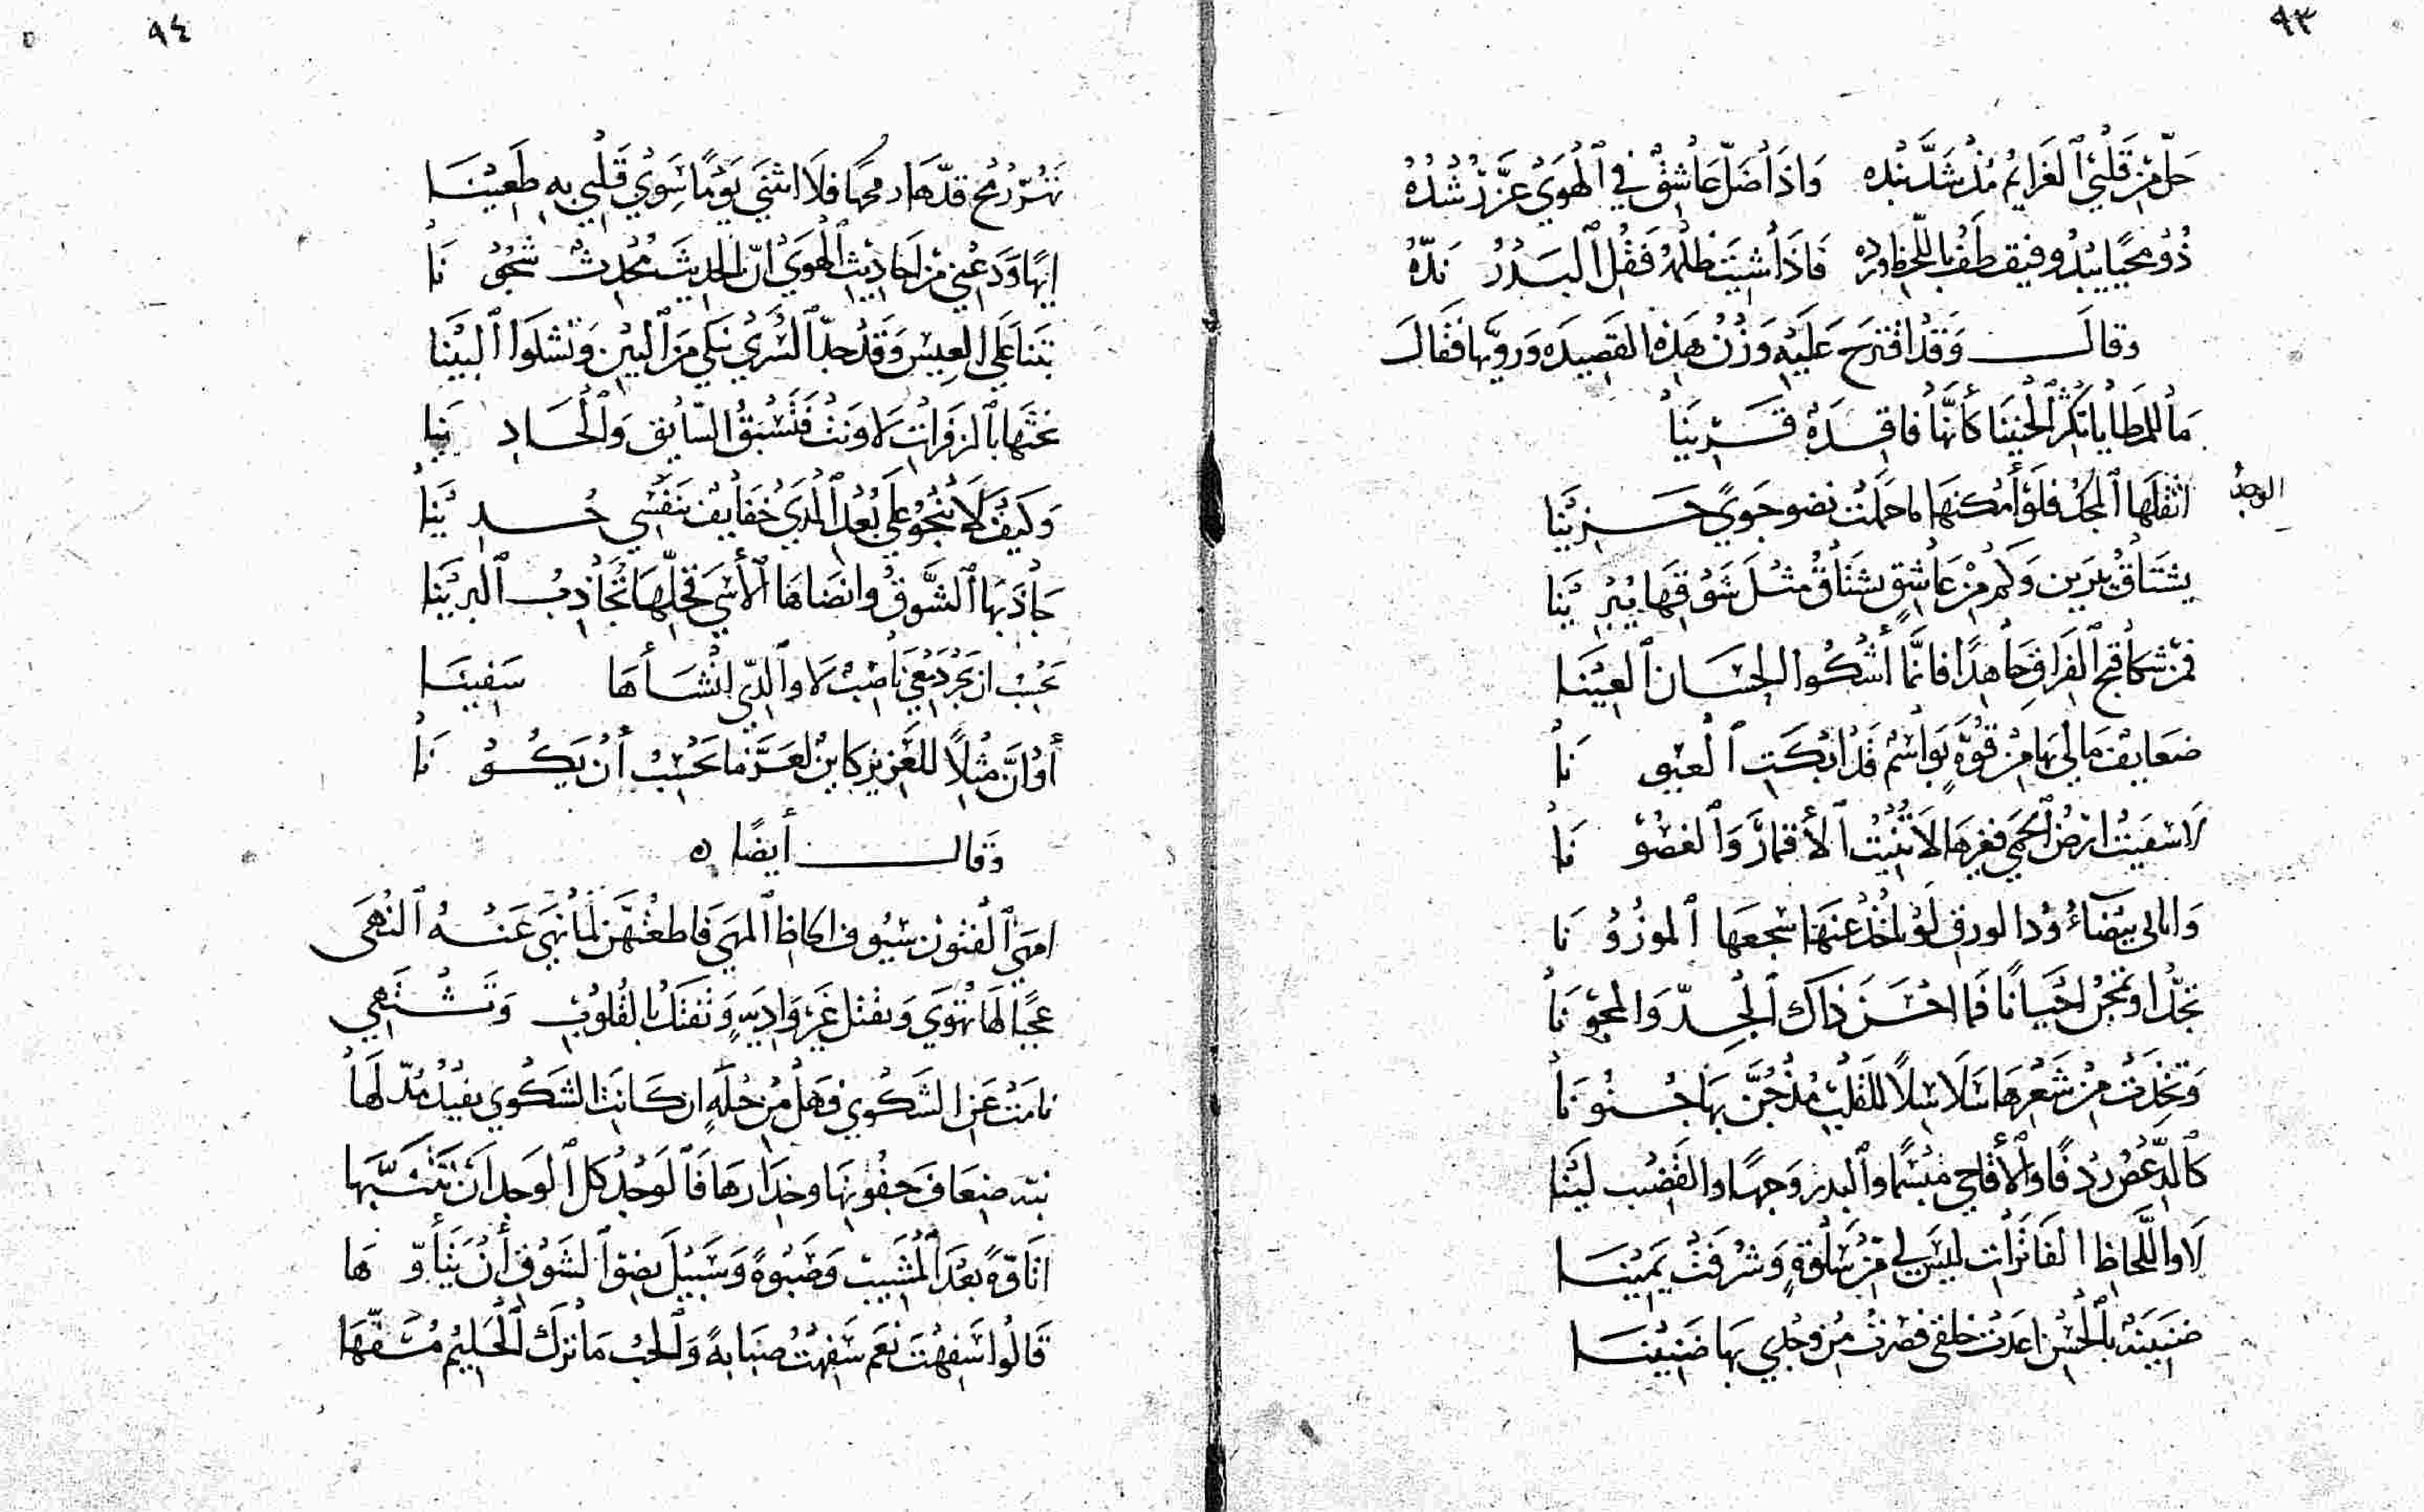 ٩٣
حَلَّ مِنْ قَلْبِي ٱلْغَرَامُ مُذْ شَدَّ بَنْدَه وَاِذَا ضَلَّ عَاشِقٌ فِي ٱلْهَوَيْ عَزَّ رُشْدُهُ
ذُوْ مُحَيًّا يَبْدُو فَيَقْطِفُ بِاللَّحْظِ وردُه فَاِذَا شِيْتَ ظُلْمَهُ فَقُلِ ٱلْبَدْرُ نِدُّهُ
وقالَ وَقَدْ اقْتُرِحَ عَلَيْهِ وَزْنُ هَذِهِ القَصِيدَه وَرَوِيّهَا فَقَالَ
مَا لِلْمَطَايَا تُكْثِرُ ٱلْحَنِيْنَا كَأَنَّهَا فَاقِدَةٌ قَرِيْنَا
اثْقَلَهَا ٱلْحِمْلُ فَلَوْ أَمْكَنَهَا مَا حَمَلَتْ نضو جَوًي حَزِيْنَا
الوجدُ
يَشْتَاقُ يَبْرِينَ وَكَمْ مِنْ عَاشِقٍ يَشْتَاقُ مِثْلَ شَوْقِهَا يَبْرِيْنَا
فَمَنْ شَكَا قُبْحَ ٱلْفِرَاقِ جَاهِدًا فَاِنَّمَا أَشْكُوا الحِسَانَ ٱلعِيْنَا
ضَعَايِفٌ مَا لِي بِهَا مِنْ قُوَّةٍ بَوَاسِمٌ قَدْ ابْكَتِ ٱلْعُيُونَا
لَا سُقِيَتْ ارْضُ ٱلْحِمَي فَغَيْرُهَا لَا تُنْبِتُ ٱلأَقْمَارَ وَٱلْغُصُوْنَا
وَاِبِالِي بَيْضَآءُ وُدَّا لورقِ لَوْ تَأْخُذُ عَنْهَا سَجْعَهَا ٱلموزُوْنَا
تَجِدُّ اوْ تَمْجُنُ احْيَانًا فَمَا احْسَنَ ذَاكَ ٱلْجِدَّ وَالمجُوْنَا
وَتخِذَتْ مِنْ شَعْرِهَا سَلَاسِلًا لِلقَلْبِ مُذْ جُنَّ بِهَا جُنُونَا
كَالدِّعْصِ رِدْفًا وَٱلأَقَاحِي مَبْسِمًا وَٱلبدْرِ وَجهًا وَالقَضيب لِيْنَا
لَا وَاللِّحَاظِ الفَاتِرَاتِ لَيْسَ لِي مِنْ سَلْوَةٍ وَشَرُفَتْ يَمِيْنَا
ضَنِيْنَةٌ بِٱلْحُسْنِ اعْدَتْ خلقي فَصرْتُ مِنْ وَجْدِي بِهَا ضَنِيْنَا
٩٤
تَهُزُّ رُمْحَ قدِّهَا رمحهَا فَلَا انْثَنَي يَوْمًا سِوَي قَلْبِي بِهِ طَعِيْنَا
اِيْهًا وَدَعْنِي مِنْ احَادِيْثِ ٱلْهَوَيْ اِنَّ ٱلحَدِيْثَ مُحْدِثٌ شُجُوْنَا
بِتْنَا عَلَي ٱلْعِيْسِ وَقَدْ جَدَّ ٱلسُّرَي نَبْكِي مِنَ ٱلبَيْنِ وَتَشْكُوا ٱلْبَيْنَا
نَحُثُّهَا بٱلزَفَرَاتِ لَا وَنَتْ فَتَسْبِقُ السَّايِقَ وَٱلْحَادِيْنَا
وَكَيْفَ لَا تَنْجُوْ عَلَي بُعْدِ ٱلْمَدَي خَفَايِفٌ بِنَفْسِي حُدِيْنَا
جَاذَبَهَا ٱلشَّوقُ وانضَاهَا ٱلأَسَي فَخِلْتُهَا تُجَاذِبُ ٱلبُرِيْنَا
تَحْسِبُ ان بَحْرَ دَمْعِي نَاضِبٌ لَا وَٱلَّذِي انْشَأَهَا سَفِينَا
أَوْ اَنَّ مِثْلًا لِلْعَزِيْزِ كَايِنٌ لَعَزَّ مَا تَحْسِبُ أَنْ يَكُوْنَا
وَقَالَ أَيضًا
امْهَي ٱلفُتُوْن سُيُوفَ الحاظِ ٱلْمَهَي فَاطعْتُهُنَّ لِمَا نَهَي عَنْهُ ٱلنُّهَي
عجبًا لَهَا تُهْوَي وَتقْتل غَيْرَ وَادِيَةٍ وَتَفْتكُ بِالقُلُوْبِ وَتُشْتَهِي
نَامَتْ عَنِ الشَكْوَي وَهَلْ مِنْ حِيْلَةٍ ان كَانَتْ الشَكْوَي تفيْدُ مُدّلَهَا
نبّه ضِعَافَ جفُونِهَا وَحِذَارهَا فَٱلوَجْدُ كلّ ٱلوَجدِ انْ تَتَنَبَّهَا
اتَأَوُّهً بَعْدَ ٱلْمَشِيْبِ وَصَبْوَةً وَسَبِيْلُ نِضْوِ ٱلشَوْقِ أَنْ يَتَأَوَّهَا
قَالُوا سَفِهْتَ نَعَمْ سَفِهْتُ صَبَابَةً وَٱلْحُبّ مَا تَرَكَ ٱلْحَلِيْمَ مُسَفّهَا